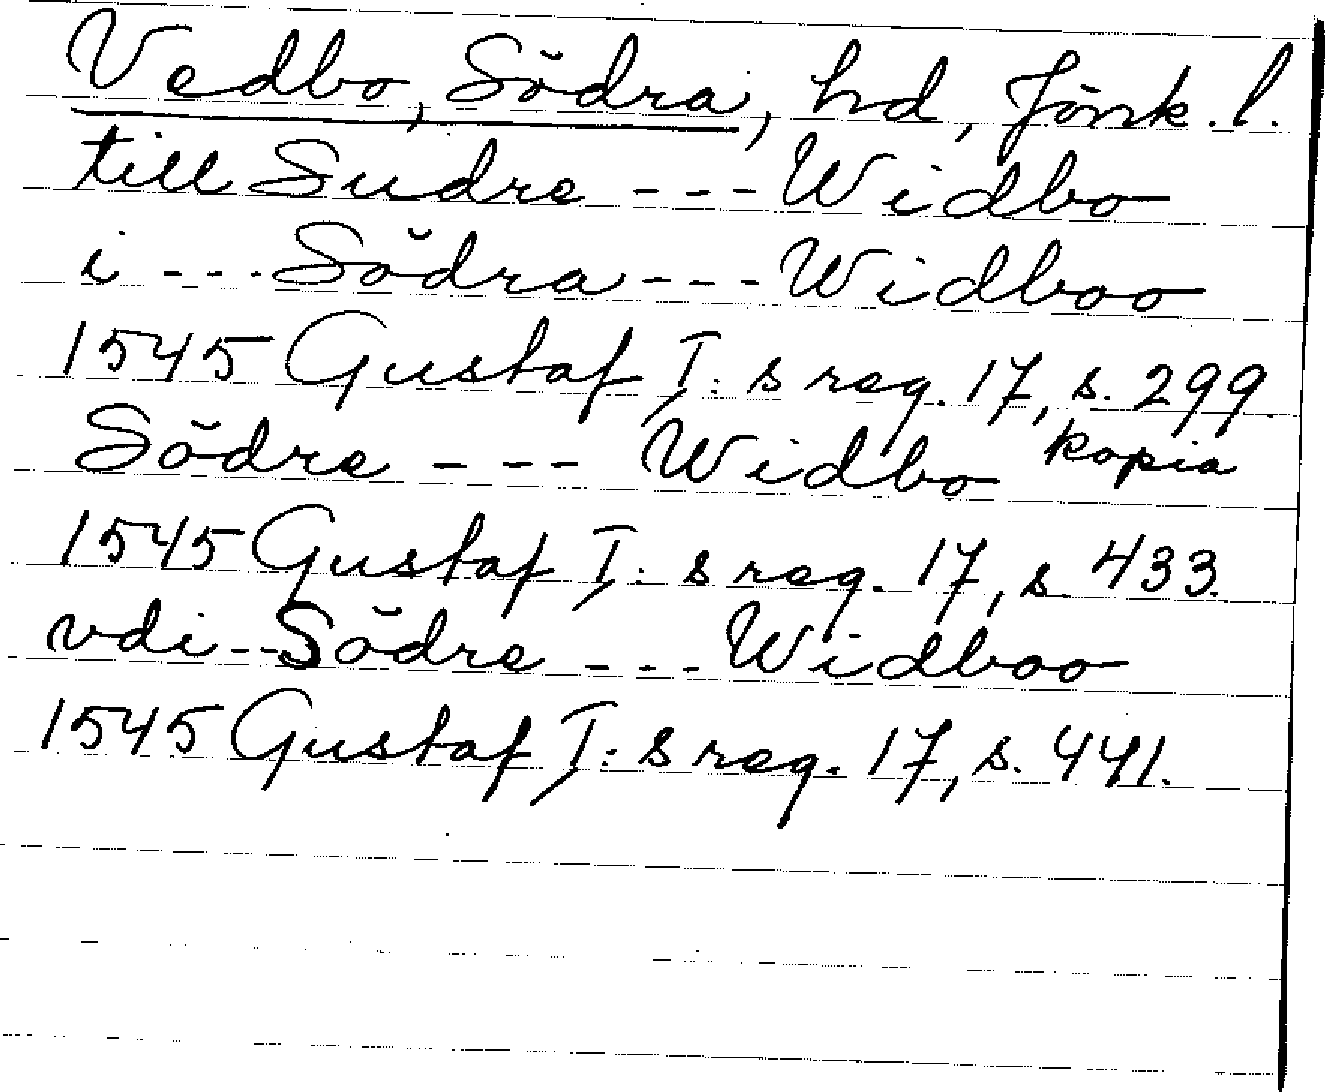 Vedbo, Södra, hd, Jönk. l.
till Sudre --- Widbo
i --- Södra --- Widboo
1545 Gustaf I: s reg. 17, s. 299.
Södre --- Widbo kopia
1545 Gustaf I: s reg. 17, s 433.
vdi -- Södre --- Widboo
1545 Gustaf I: s reg. 17, s. 441.